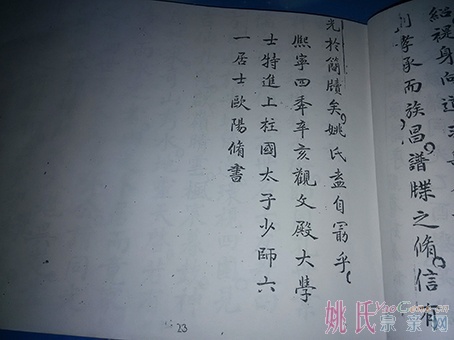 孝承而族昌譜牒之脩信有
光於簡牘矣姚氏盍自勗乎
熙寧四秊辛亥觀文殿大學
士特進上柱國太子少師六
一居士歐陽脩書
23
姚氏宗亲网